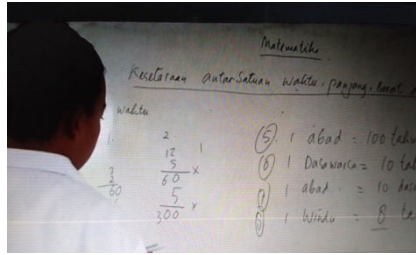 Matematika
Kesetaraan antar Satuan Waktu, panjang, berat
Waktu
1. 2
12 1
5 x
60
5 x
300
3
60
(5). 1 abad = 100 tahu
(6) 1 Dasawarsa = 10 ta
1 abad = 10 dasa
(8) 1 Windu = 8 ta